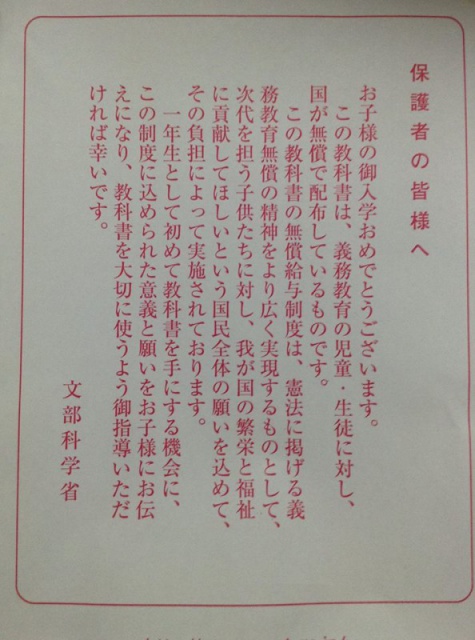 保護者の皆様へ
お子様の御入学おめでとうございます。
この教科書は、義務教育の児童・生徒に対し、
国が無償で配布しているものです。
この教科書の無償給与制度は、憲法に掲げる義
務教育無償の精神をより広く実現するものとして、
次代を担う子供たちに対し、我が国の繁栄と福祉
に貢献してほしいという国民全体の願いを込めて、
その負担によって実施されております。
一年生として初めて教科書を手にする機会に、
この制度に込められた意義と願いをお子様にお伝
えになり、教科書を大切に使うよう御指導いただ
ければ幸いです。
文部科学省